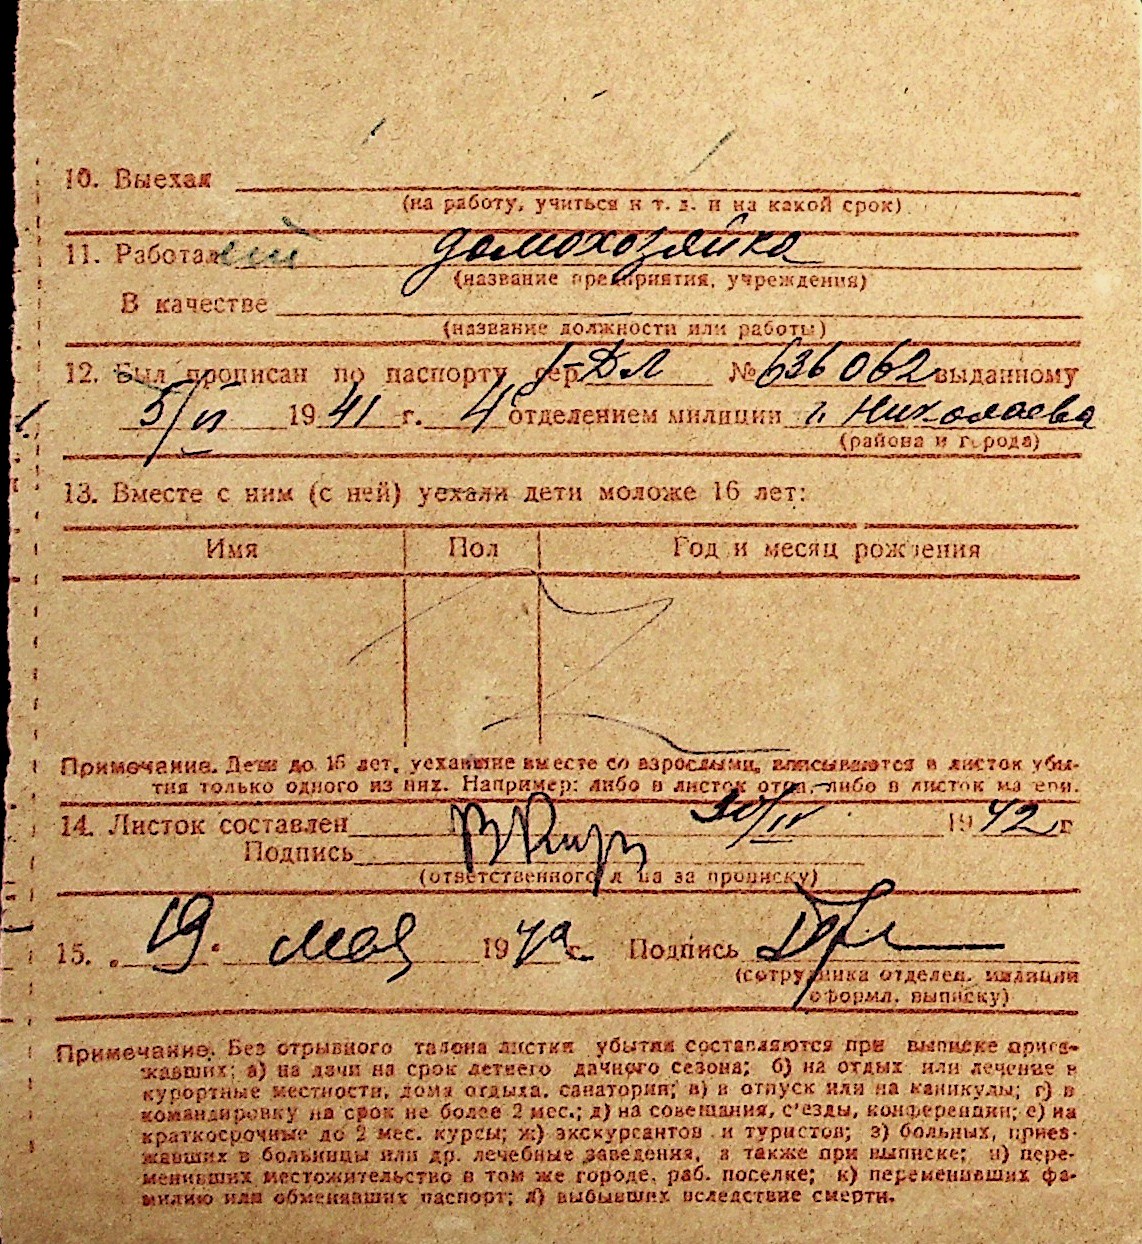 10. Выехал
(на работу, учиться и т. д. и на какой срок)
11. Работал домохозяйка
(название предприятия, учреждения)
В качестве
(название должности или работы)
12. Был прописан по паспорту сер. ДЛ № 636062 выданному
5/VI 1941 г. 4 отделением милиции г. Николаева
(района и города)
13. Вместе с ним (с ней) уехали дети моложе 16 лет:
Имя Пол Год и месяц рождения
Примечание. Дети до 16 лет, уехавшие вместе со взрослыми, вписываются в листок убы-
тия только одного из них. Например: либо в листок отца, либо в листок матери.
14. Листок составлен 1942 г
Подпись
(ответственного лица за прописку)
15. „19“ мая 1942 г. Подпись
(сотрудника отделен. милиции
оформл. выписку)
Примечание: Без отрывного талона листки убытия составляются при выписке приез-
жавших: а) на дачи на срок летнего дачного сезона; б) на отдых или лечение в
курортные местности, дома отдыха, санатории; в) в отпуск или на каникулы; г) в
командировку на срок не более 2 мес.; д) на совещания, с'езды, конференции; е) на
краткосрочные до 2 мес. курсы; ж) экскурсантов и туристов; з) больных, приез-
жавших в больницы или др. лечебные заведения, а также при выписке; и) пере-
менивших местожительство в том же городе, раб. поселке; к) переменивших фа-
милию или обменявших паспорт; л) выбывших вследствие смерти.